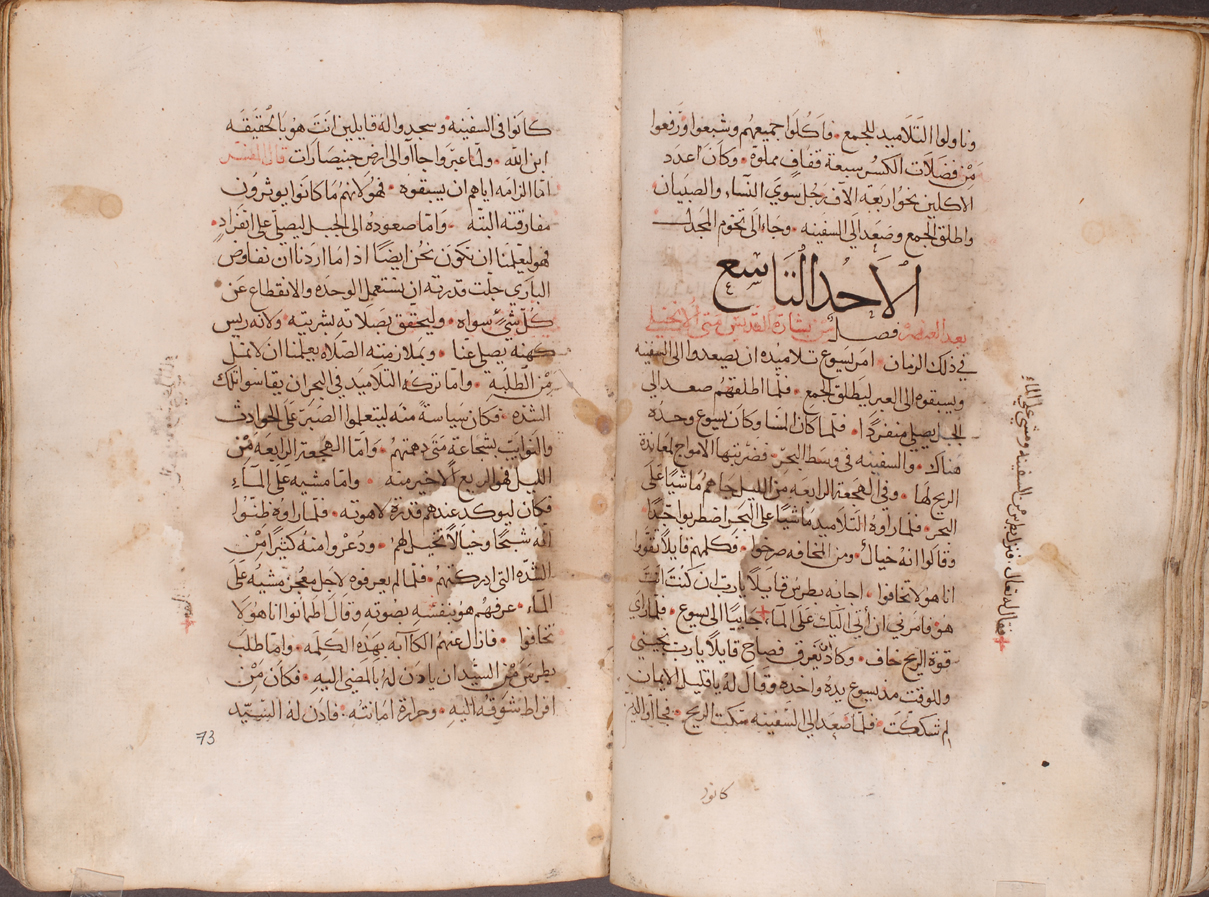 وناولوا التلاميد للجمع • فاكلوا جميعهم وشبعوا ورفعوا
من فضلات الكسر سبعة قفاف مملوة • وكان اعدد
الاكلين نحوا ربعة الاف رجل سوي النساء والصبيان •
واطلق الجمع وصعد الي السفينه • وجاء الي تخوم المجدل
الاحد التاسع
بعد العنصره فصل من بشارة القديس متى الانجيلي
في ذلك الزمان • امر يسوع تلاميده ان يصعدوا الى السفينه
ويسبقوه الى العبر ليطلق الجمع • فلما اطلقهم صعد الي
الجبل يصلي منفردًا • فلما كان المسا وكان يسوع وحده
هناك • والسفينه في وسط البحر • فضربتها الامواج لمعاندة
الريح لها • وفي الهجعة الرابعه من الليل جاهم ماشيًا على
البحر • فلما راوه التلاميد ماشيًا على البحر اضطربوا جدًا •
وقالوا انه خيال • ومن المخافه صرخوا • فكلمهم قايلاً تقووا
انا هو لا تخافوا • اجابه بطرس قايلاً يارب ان كنت انت
هو فامرني ان أتي اليك على الماء • جاييًا الى يسوع • فلما راي
قوة الريح خاف • وكاد يغرف فصاح قايلاً يارب نجيني
وللوقت مد يسوع يده واخده وقال له يا قليل الايمان
لم شككت • فلما صعد الي السفينه سكت الريح • فجاا واليه
كانوا
فقال له تعال • فنزل بطرس من السفينه ومشي على الماء
كانوا في السفينه وسجدوا له قايلين انت هو بالحقيقه
ابن الله • ولما عبروا جااوا الى ارض جنيصارات قال المفسر
اما الزامه اياهم ان يسبقوه • فهو لانهم ما كانوا يوثرون
مفارقته البته • واما صعوده الى الجبل ليصلي على انفراد
فهو ليعلمنا ان نكون نحن ايضًا اذا ما اردنا ان نفاوض
الباري جلت قدرته ان نستعمل الوحده والانقطاع عن
كل شيء سواه • وليحقق بصلاته بشريته • ولانه ريس
كهنه يصلي عنا • وبملازمته الصلاه يعلمنا ان لا نمل
من الطلبة • واما تركه التلاميد في البحر ان يقاسوا تلك
الشده • فكان سياسةً منه ليتعلموا الصبر على الحوادث
والنوايب بشجاعة متى دهمتهم • واما الهجعة الرابعه من
الليل فهو الربع الاخير منه • واما مشيه على الماء
فكان ليوكد عندهم قدرة لاهوته • فلما راوه ظنوا
انه شبحًا وخيالاً تخيل لهم • ودعروا منه كثيرًا من
الشده التي ادركتهم • فلما لم يعرفوه لاجل معجز مشيه على
الماء • عرفهم هو بنفسه بصوته وقال اطمانوا انا هو لا
تخافوا • فازال عنهم الكآبه بهذه الكلمه • واما طلب
بطرس من السيد ان يادن له بالمضي اليه • فكان من
افراط تشوقه اليه • وحرارة امانته • فادن له السيد
73